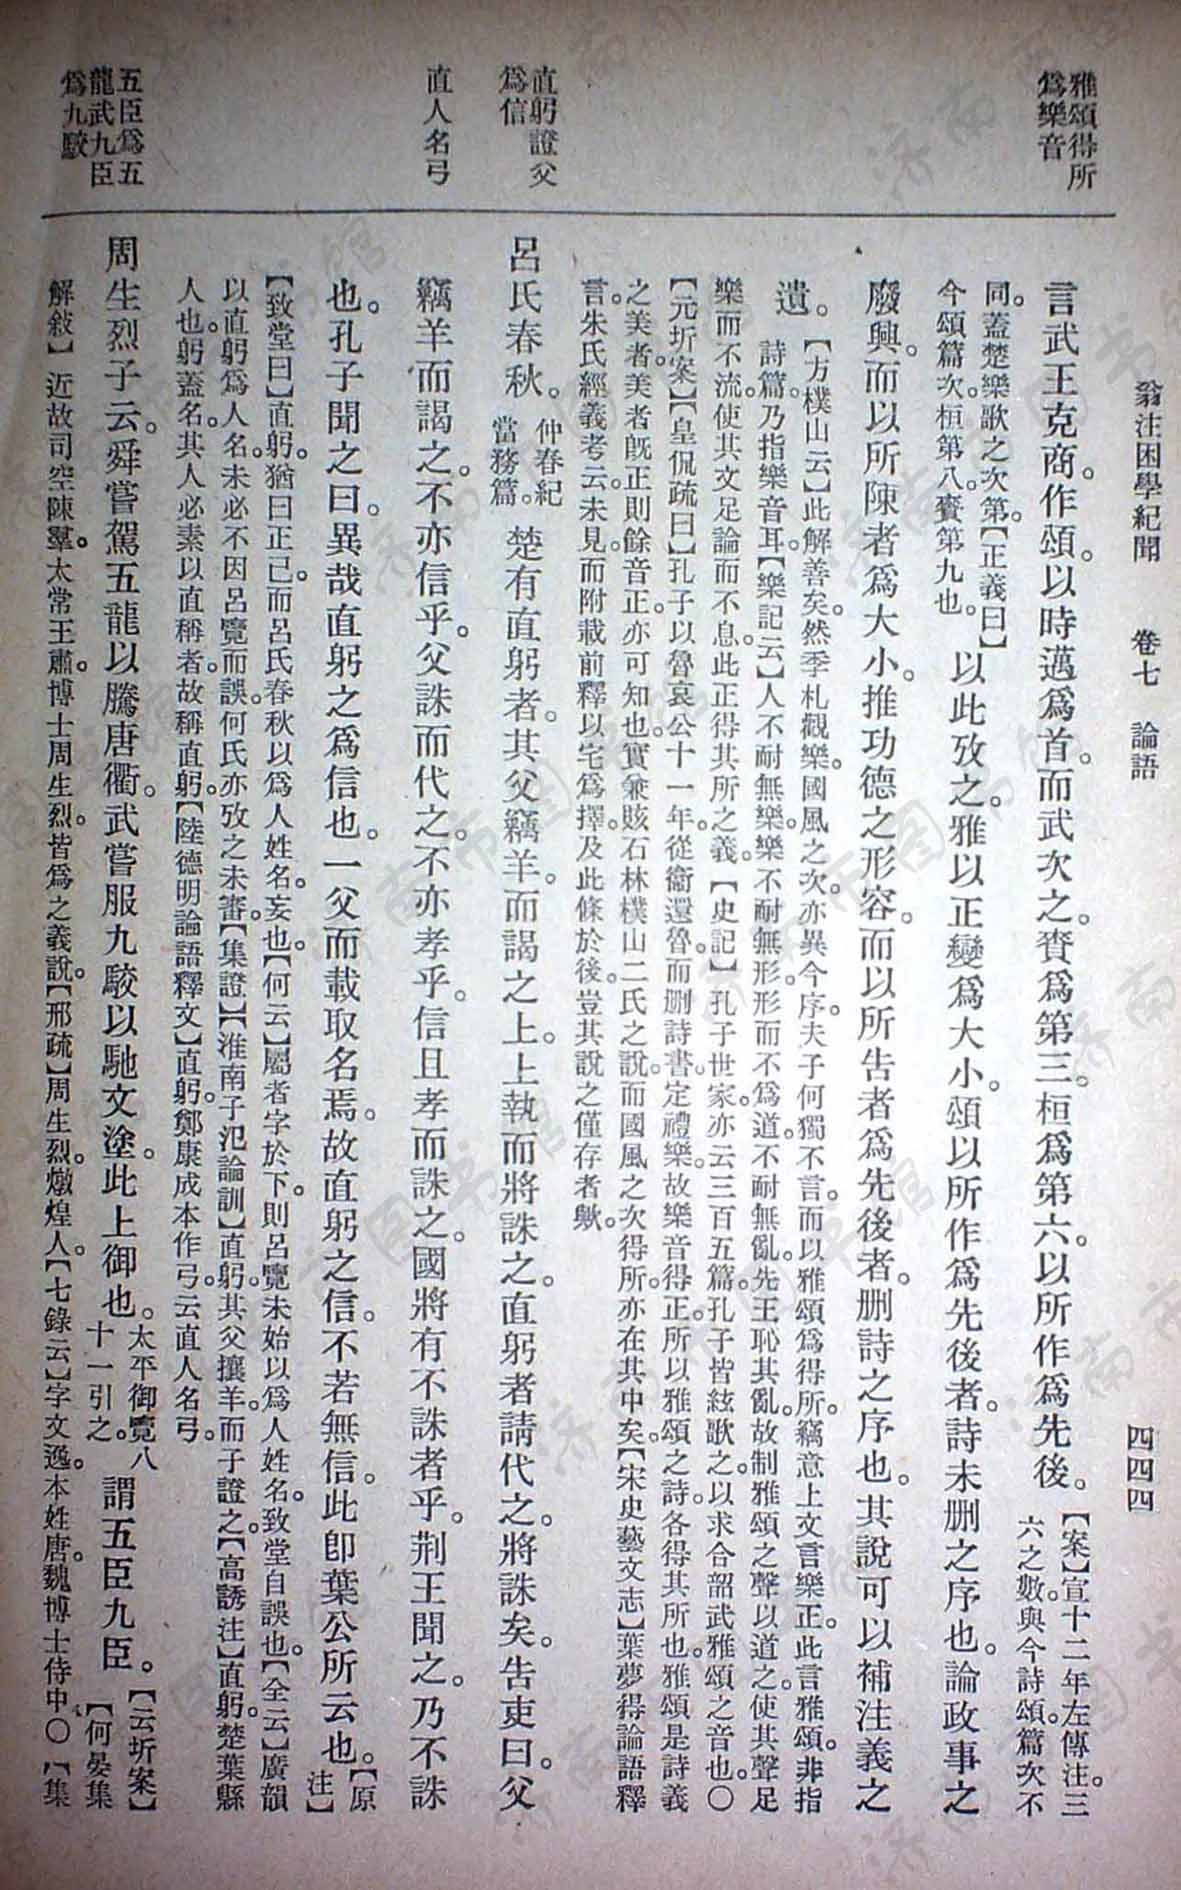 翁注困學紀聞　卷七　論語　四四四
雅頌得所
爲樂音
直躬證父
爲信
直人名弓
五臣爲五
龍武九臣
爲九駮
言武王克商。作頌。以時邁爲首。而武次之。賚爲第三。桓爲第六。以所作爲先後。【案】宣十二年左傳注。三
六之數。與今詩頌。篇次不
同。蓋楚樂歌之次第。【正義曰】
今頌篇次。桓第八。賚第九也。
以此攷之。雅以正變爲大小。頌以所作爲先後者。詩未刪之序也。論政事之
廢興。而以所陳者爲大小。推功德之形容。而以所告者爲先後者。刪詩之序也。其說可以補注義之
遺。【方樸山云】此解善矣。然季札觀樂。國風之次。亦異今序。夫子何獨不言。而以雅頌爲得所。竊意上文言樂正。此言雅頌。非指
詩篇。乃指樂音耳。【樂記云】人不耐無樂。樂不耐無形。形而不爲道。不耐無亂。先王恥其亂。故制雅頌之聲以道之。使其聲足
樂而不流。使其文足論而不息。此正得其所之義。【史記】孔子世家。亦云三百五篇。孔子皆絃歌之。以求合韶武雅頌之音也。○
【元圻案】【皇侃疏曰】孔子以魯哀公十一年。從衞還魯。而刪詩書。定禮樂。故樂音得正。所以雅頌之詩。各得其所也。雅頌是詩義
之美者。美者旣正。則餘音正。亦可知也。實兼賅石林樸山二氏之說。而國風之次得所。亦在其中矣。【宋史藝文志】葉夢得論語釋
言。朱氏經義考云。未見。而附載前釋以宅爲擇。及此條於後。豈其說之僅存者歟。
呂氏春秋。仲春紀
當務篇。
楚有直躬者。其父竊羊。而謁之上。上執而將誅之。直躬者請代之。將誅矣。告吏曰。父
竊羊而謁之。不亦信乎。父誅而代之。不亦孝乎。信且孝而誅之。國將有不誅者乎。荆王聞之。乃不誅
也。孔子聞之曰。異哉直躬之爲信也。一父而載取名焉。故直躬之信。不若無信。此卽葉公所云也。【原
注】
【致堂曰】直躬。猶曰正己。而呂氏春秋以爲人姓名。妄也。【何云】屬者字於下。則呂覽未始以爲人姓名。致堂自誤也。【全云】廣韻
以直躬爲人名。未必不因呂覽而誤。何氏亦攷之未審。【集證】【淮南子氾論訓】直躬。其父攘羊。而子證之。【高誘注】直躬。楚葉縣
人也。躬蓋名。其人必素以直稱者。故稱直躬。【陸德明論語釋文】直躬。鄭康成本作弓。云直人名弓。
周生烈子云。舜嘗駕五龍以騰唐衢。武嘗服九駮以馳文塗。此上御也。太平御覽八
十一引之。
謂五臣九臣。【云圻案】
【何晏集
解敍】近故司空陳羣。太常王肅。博士周生烈。皆爲之義說。【邢疏】周生烈。燉煌人。【七錄云】字文逸。本姓唐。魏博士侍中。○【集